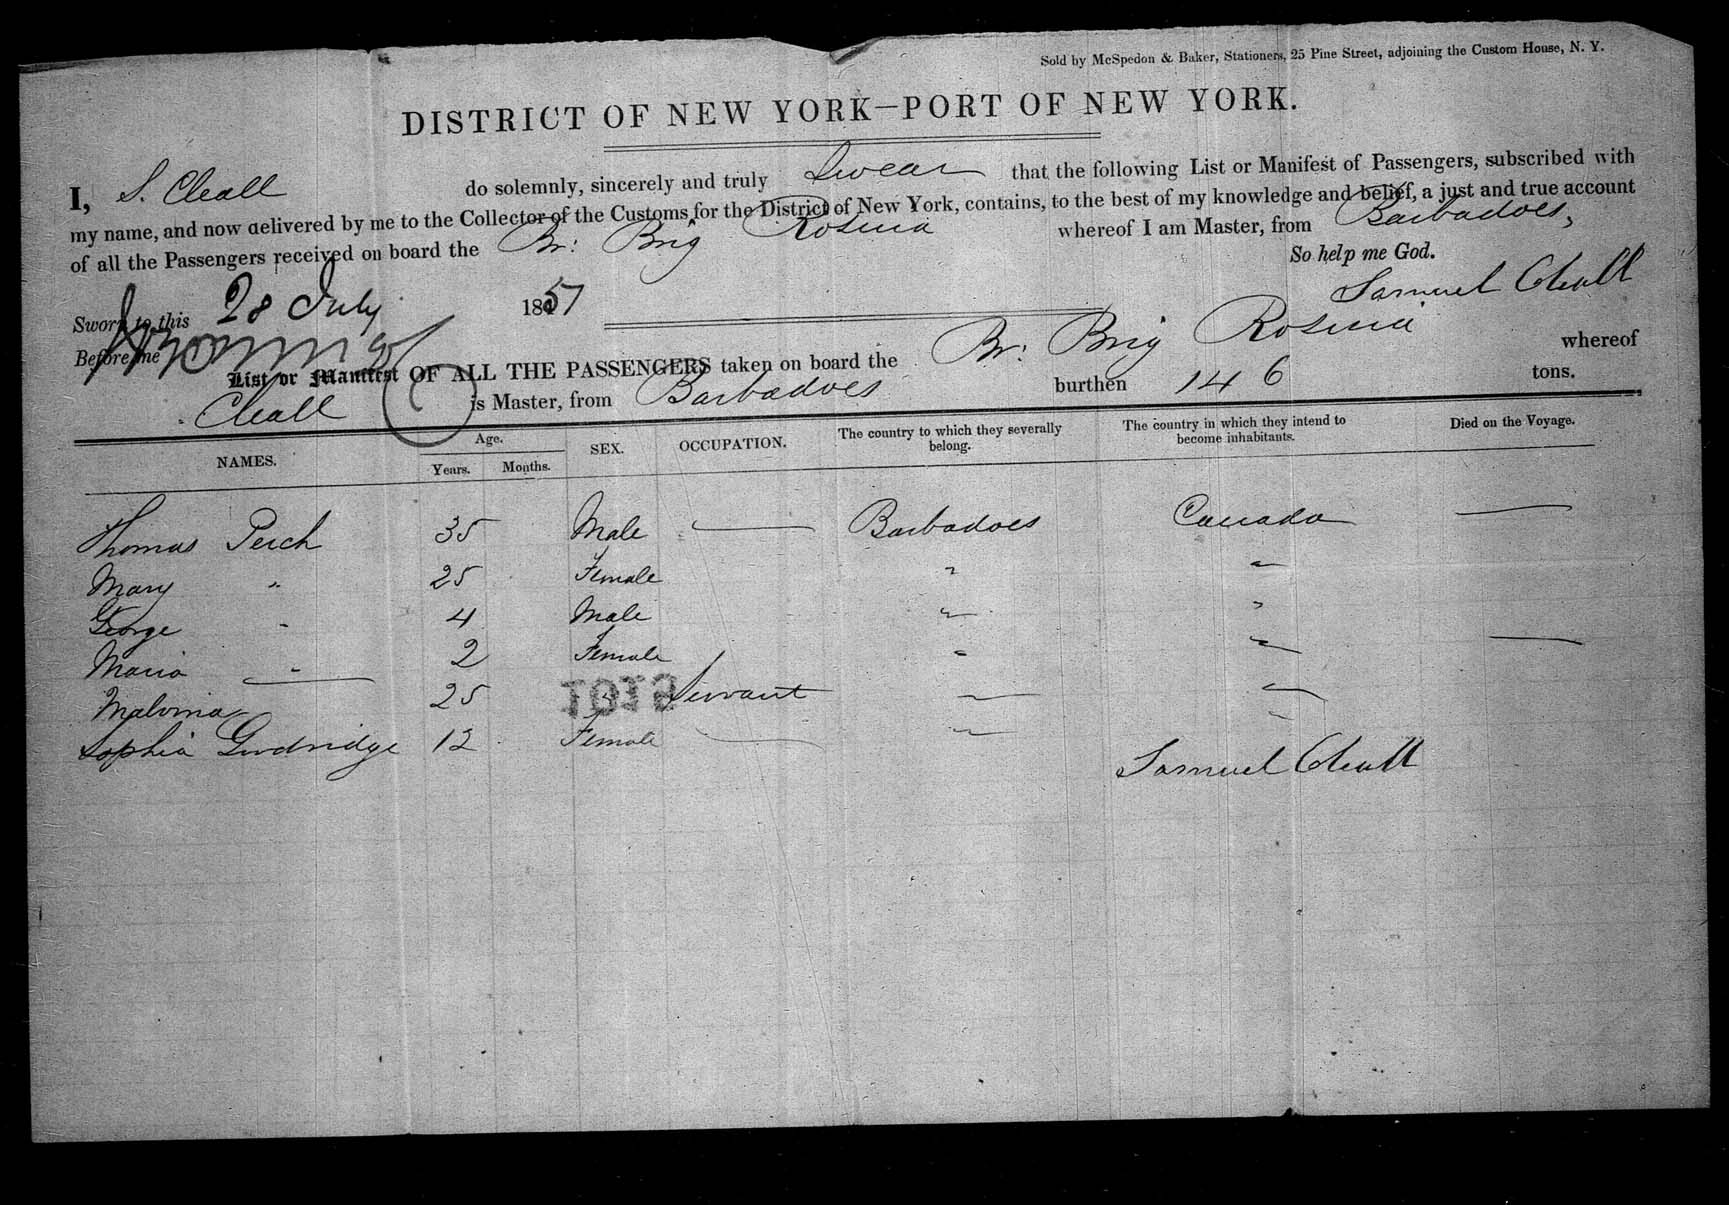 Sold by McSpedon & Baker, Stationers, 25 Pine Street, adjoining the Custom House, N. Y.
DISTRICT OF NEW YORK—PORT OF NEW YORK.
I, S. Cleall do solemnly, sincerely and truly Swear that the following List or Manifest of Passengers, subscribed with
my name, and now delivered by me to the Collector of the Customs for the District of New York, contains, to the best of my knowledge and belief, a just and true account
of all the Passengers received on board the Br: Brig Rosina whereof I am Master, from Barbadoes,
So help me God.
Sworn to this 28 July 1857 Samuel Cleall
Before me
List or Manifest OF ALL THE PASSENGERS taken on board the Br: Brig Rosina whereof
Cleall is Master, from Barbadoes burthen 146 tons.
NAMES. Age. Years. Months. SEX. OCCUPATION. The country to which they severally belong. The country in which they intend to become inhabitants. Died on the Voyage.
Thomas Perch 35 Male — Barbadoes Canada —
Mary " 25 Female " "
George " 4 Male " "
Maria " 2 Female " " —
Malvina — 25 " Servant " "
Sophia Goodridge 12 Female — " "
1019
Samuel Cleall